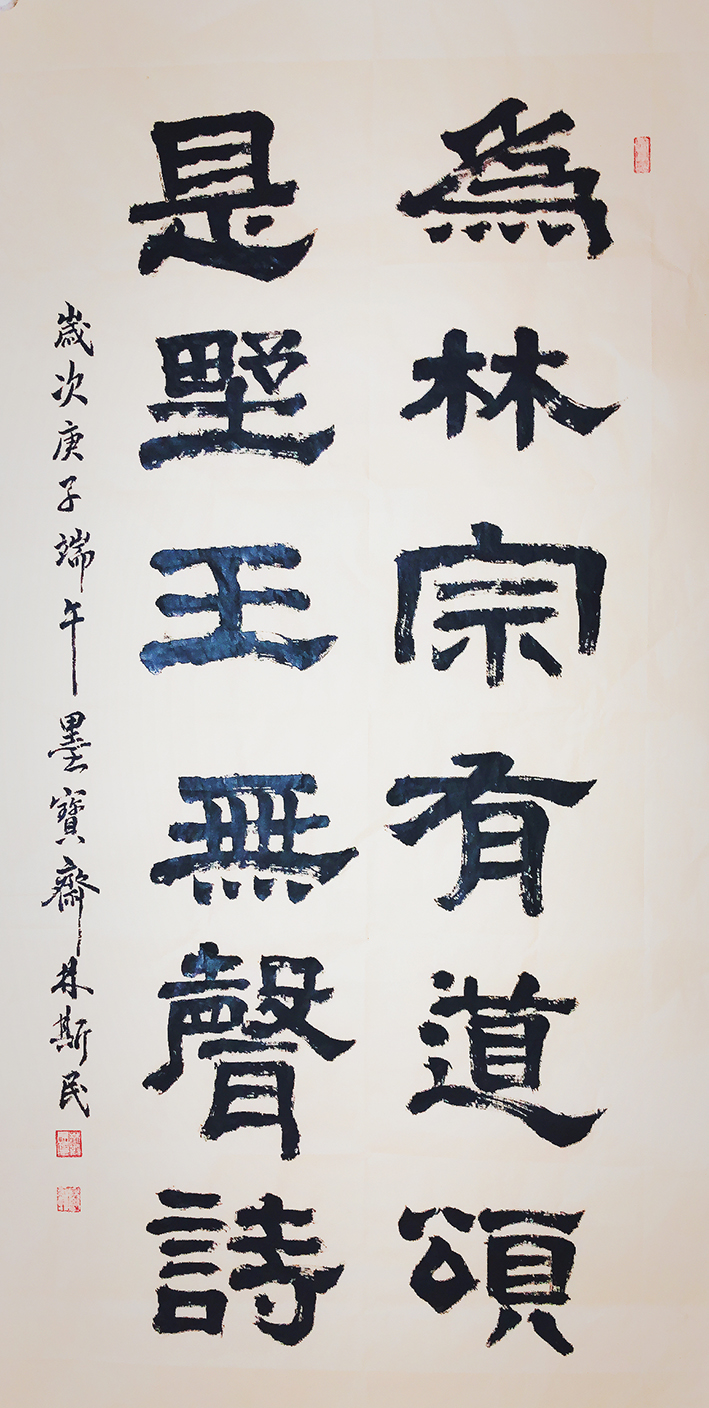 為林宗有道頌
是野王無聲詩
歲次庚子端午墨寶齋林斯民